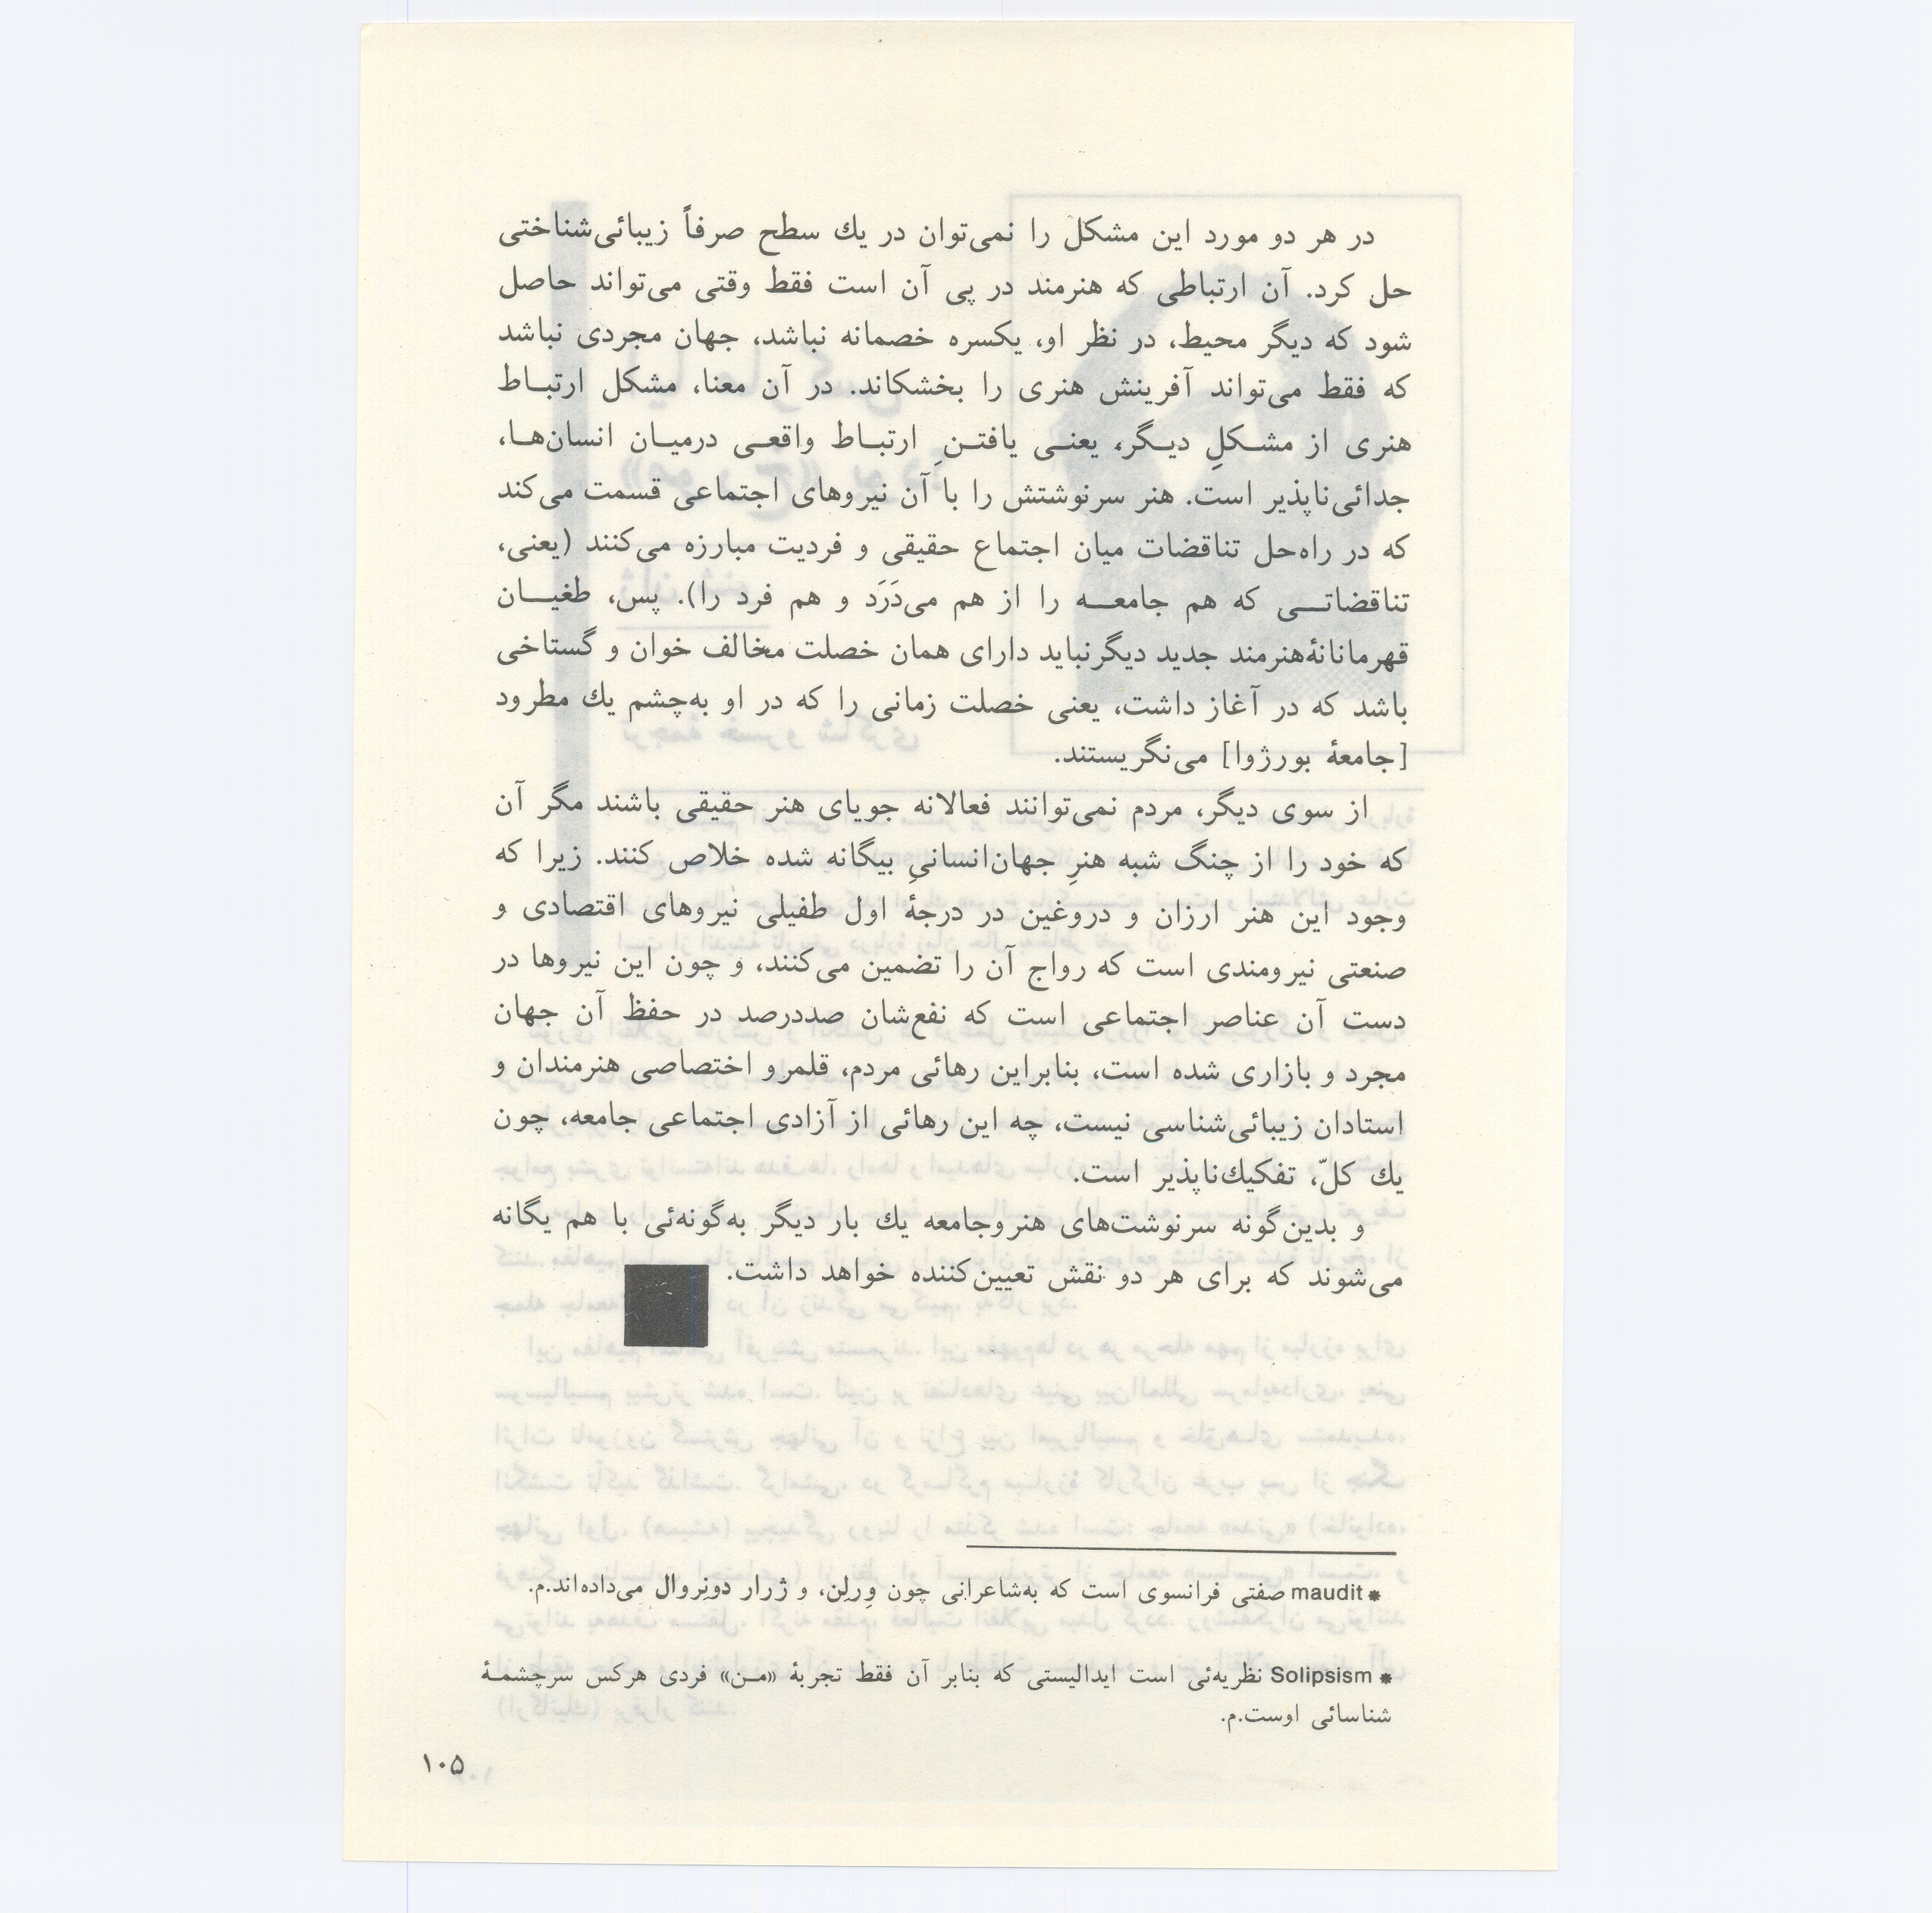 در هر دو مورد این مشکل را نمی‌توان در یك سطح صرفاً زیبائی‌شناختی
حل کرد. آن ارتباطی که هنرمند در پی آن است فقط وقتی می‌تواند حاصل
شود که دیگر محیط، در نظر او، یکسره خصمانه نباشد، جهان مجردی نباشد
که فقط می‌تواند آفرینش هنری را بخشکاند. در آن معنا، مشکل ارتبـاط
هنری از مشـکلِ دیـگر، یعنـی یافتـنِ ارتبـاط واقعـی درمیـان انسان‌هـا،
جدائی‌ناپذیر است. هنر سرنوشتش را با آن نیروهای اجتماعی قسمت می‌کند
که در راه‌حل تناقضات میان اجتماع حقیقی و فردیت مبارزه می‌کنند (یعنی،
تناقضاتـــی که هم جامعـــه را از هم می‌دَرَد و هم فرد را). پس، طغیـــان
قهرمانانهٔ‌هنرمند جدید دیگرنباید دارای همان خصلت مخالف خوان و گستاخی
باشد که در آغاز داشت، یعنی خصلت زمانی را که در او به‌چشم یك مطرود
[جامعهٔ بورژوا] می‌نگریستند.
از سوی دیگر، مردم نمی‌توانند فعالانه جویای هنر حقیقی باشند مگر آن
که خود را از چنگ شبه هنرِ جهان‌انسانیِ بیگانه شده خلاص کنند. زیرا که
وجود این هنر ارزان و دروغین در درجهٔ اول طفیلی نیروهای اقتصادی و
صنعتی نیرومندی است که رواج آن را تضمین می‌کنند، و چون این نیروها در
دست آن عناصر اجتماعی است که نفع‌شان صددرصد در حفظ آن جهان
مجرد و بازاری شده است، بنابراین رهائی مردم، قلمرو اختصاصی هنرمندان و
استادان زیبائی‌شناسی نیست، چه این رهائی از آزادی اجتماعی جامعه، چون
یك کلّ، تفکیك‌ناپذیر است.
و بدین‌گونه سرنوشت‌های هنروجامعه یك بار دیگر به‌گونه‌ئی با هم یگانه
می‌شوند که برای هر دو نقش تعیین‌کننده خواهد داشت.
* maudit صفتی فرانسوی است که به‌شاعرانی چون وِرلِن، و ژرار دونِروال می‌داده‌اند.م.
* Solipsism نظریه‌ئی است ایدالیستی که بنابر آن فقط تجربهٔ «مـن» فردی هرکس سرچشمـهٔ
شناسائی اوست.م.
۱۰۵